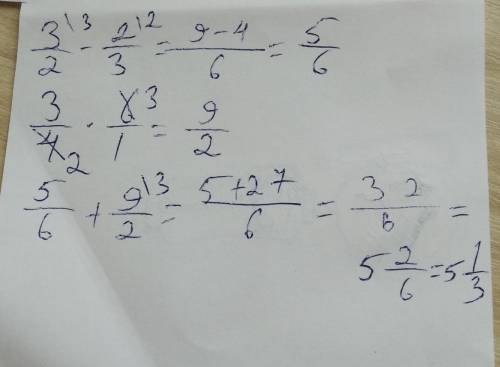 3/2\3 - 2/3\2 = 9-4/6 = 5/6
3/4 2 · 6 3/1 = 9/2
5/6 + 9/2\3 = 5+27/6 = 32/6 =
5 2/6 = 5 1/3